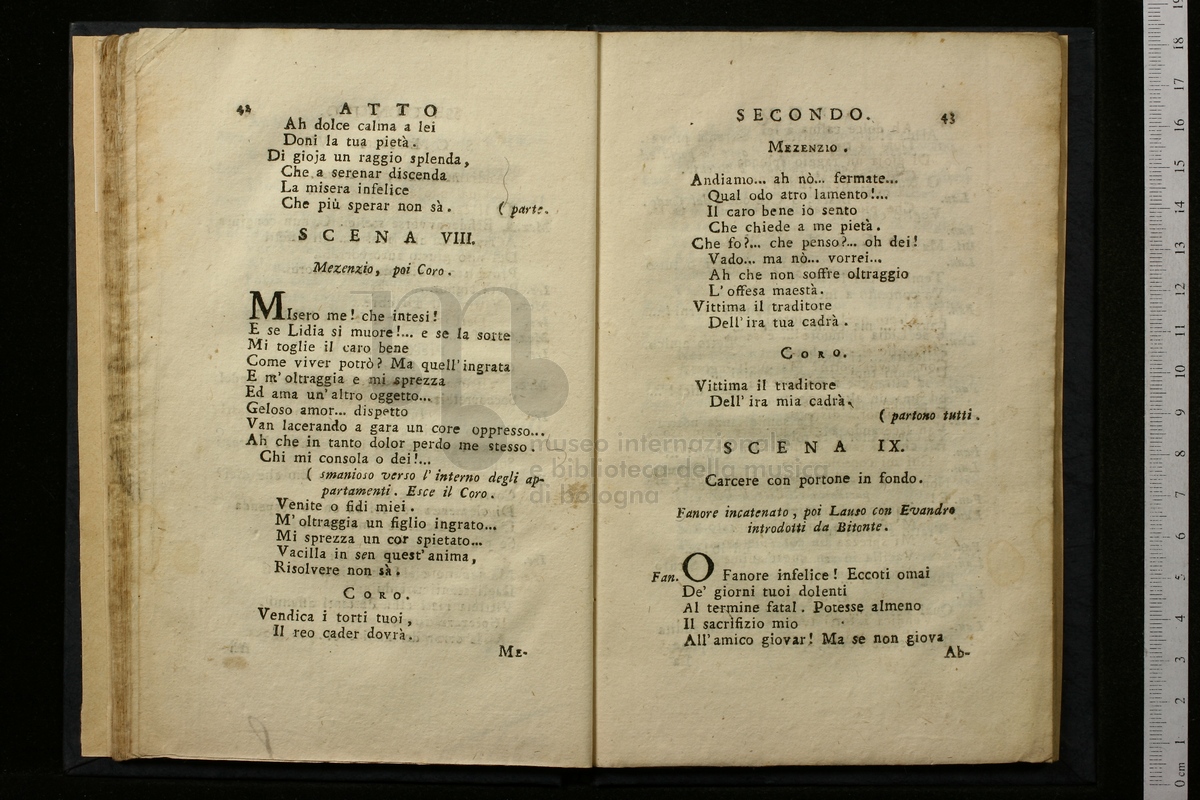 42 ATTO
Ah dolce calma a lei
Doni la tua pietà.
Di gioja un raggio splenda,
Che a serenar discenda
La misera infelice
Che più sperar non sà. ( parte.
SCENA VIII.
Mezenzio, poi Coro.
MIsero me! che intesi!
E se Lidia si muore!... e se la sorte
Mi toglie il caro bene
Come viver potrò? Ma quell' ingrata
E m' oltraggia e mi sprezza
Ed ama un' altro oggetto...
Geloso amor... dispetto
Van lacerando a gara un core oppresso...
Ah che in tanto dolor perdo me stesso.
Chi mi consola o dei!...
( smanioso verso l' interno degli ap-
partamenti. Esce il Coro.
Venite o fidi miei.
M' oltraggia un figlio ingrato...
Mi sprezza un cor spietato...
Vacilla in sen quest' anima,
Risolvere non sà.
CORO.
Vendica i torti tuoi,
Il reo cader dovrà.
ME-
SECONDO. 43
MEZENZIO.
Andiamo... ah nò... fermate...
Qual odo atro lamento!...
Il caro bene io sento
Che chiede a me pietà.
Che fo?... che penso?... oh dei!
Vado... ma nò... vorrei...
Ah che non soffre oltraggio
L' offesa maestà.
Vittima il traditore
Dell' ira tua cadrà.
CORO.
Vittima il traditore
Dell' ira mia cadrà.
( partono tutti.
SCENA IX.
Carcere con portone in fondo.
Fanore incatenato, poi Lauso con Evandro
introdotti da Bitonte.
Fan. O Fanore infelice! Eccoti omai
De' giorni tuoi dolenti
Al termine fatal. Potesse almeno
Il sacrifizio mio
All' amico giovar! Ma se non giova
Ab-
museo internazionale
e biblioteca della musica
di bologna
0 cm 1 2 3 4 5 6 7 8 9 10 11 12 13 14 15 16 17 18 19